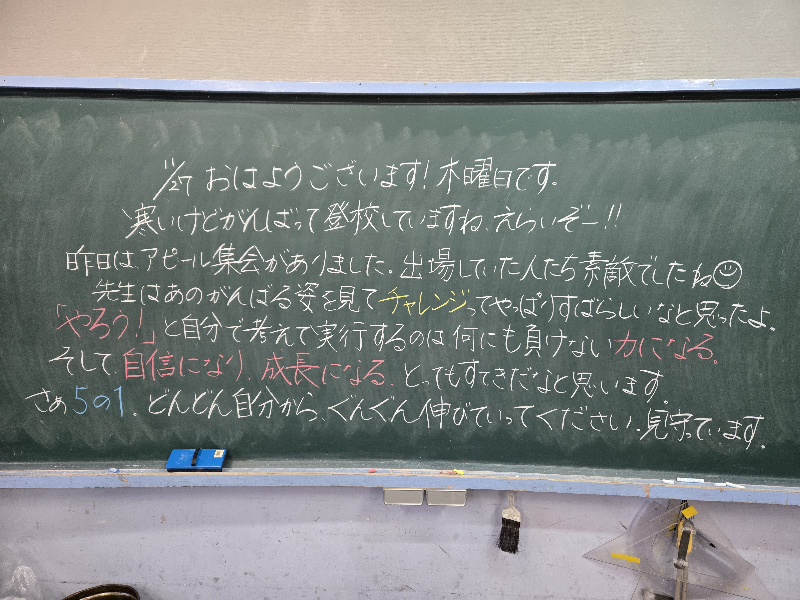 11/27 おはようございます! 木曜日です。
寒いけどがんばって登校していますね。えらいぞー!!
昨日は、アピール集会がありました。出場していた人たち素敵でしたね☺
先生はあのがんばる姿を見てチャレンジってやっぱりすばらしいなと思ったよ。
「やろう!」と自分で考えて実行するのは、何にも負けない力になる。
そして、自信になり、成長になる。とってもすてきだなと思います。
さぁ5の1、どんどん自分から、ぐんぐん伸びていってください。見守っています。